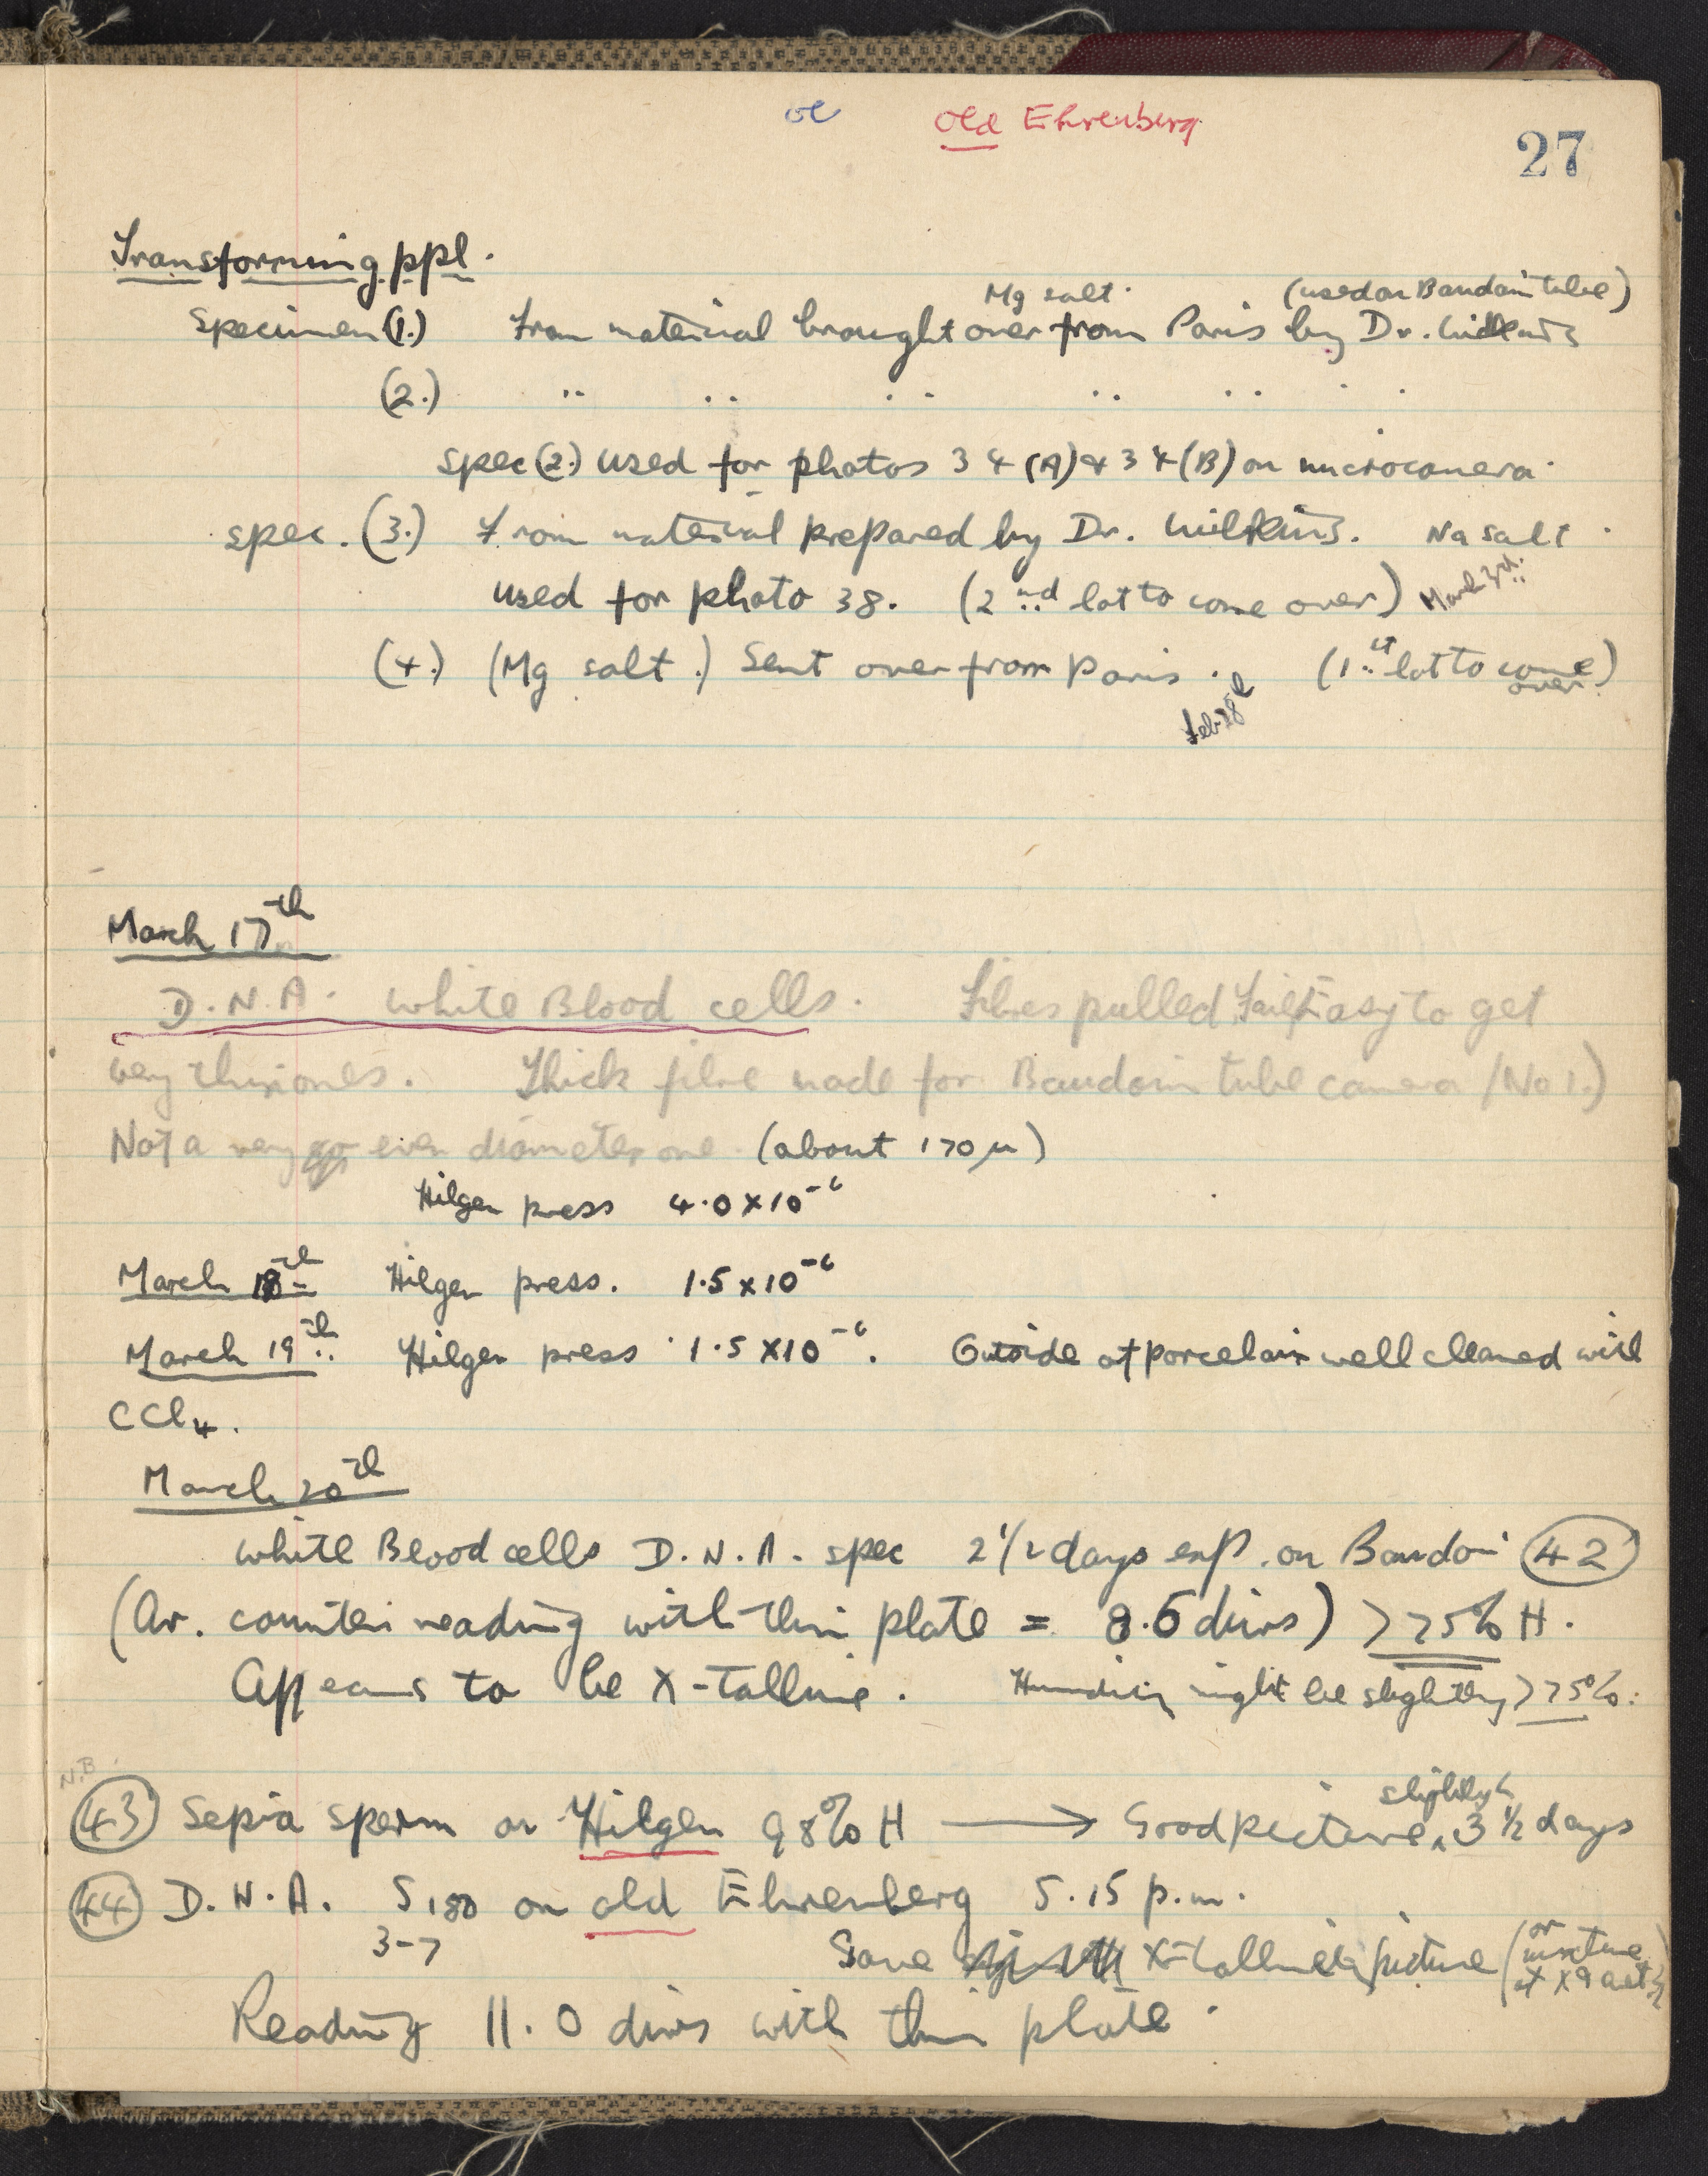 old Ehrenberg
27
Transforming ppl.
Mg salt. (used on Baudoin tube)
Specimen (1.) From material brought over from Paris by Dr. Wilkins
(2.) " " " " " " "
Spec (2.) used for photos 34 (A) & 34 (B) on microcamera.
Spec. (3.) From material prepared by Dr. Wilkins. Na salt.
used for photo 38. (2nd lot to come over) March 3rd.
(4.) (Mg salt.) Sent over from Paris. (1st lot to come over)
Feb 28th
March 17th
D.N.A. White Blood cells. Fibres pulled. Fairly Easy to get
very thin ones. Thick fibre made for Baudoin tube camera (No 1.)
Not a very even diameter one (about 170 μ)
Hilger press 4.0 x 10⁻⁶
March 18th Hilger press. 1.5 x 10⁻⁶
March 19th Hilger press 1.5 x 10⁻⁶. Outside of porcelain well cleaned with
CCl₄.
March 20th
White Blood cells D.N.A. spec 2 1/2 days exp. on Baudoin 42
(Av. counter reading with thin plate = 8.5 divs) >75% H.
Appears to be X-talline. Humidity might be slightly >75%.
N.B.
slightly <
43 Sepia sperm on Hilger 98% H → Good picture 3 1/2 days
44 D.N.A. S180 on old Ehrenberg 5.15 p.m.
3-7
Gave X-talline picture (or mixture of
Reading 11.0 divs with thin plate.